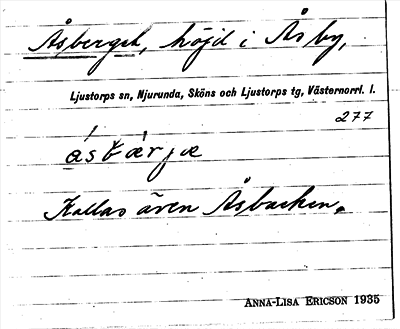 Åsberget, höjd i Åsby,
Ljustorps sn, Njurunda, Sköns och Ljustorps tg, Västernorrl. l.
277
Kallas även Åsbacken.
ANNA-LISA ERICSON 1935